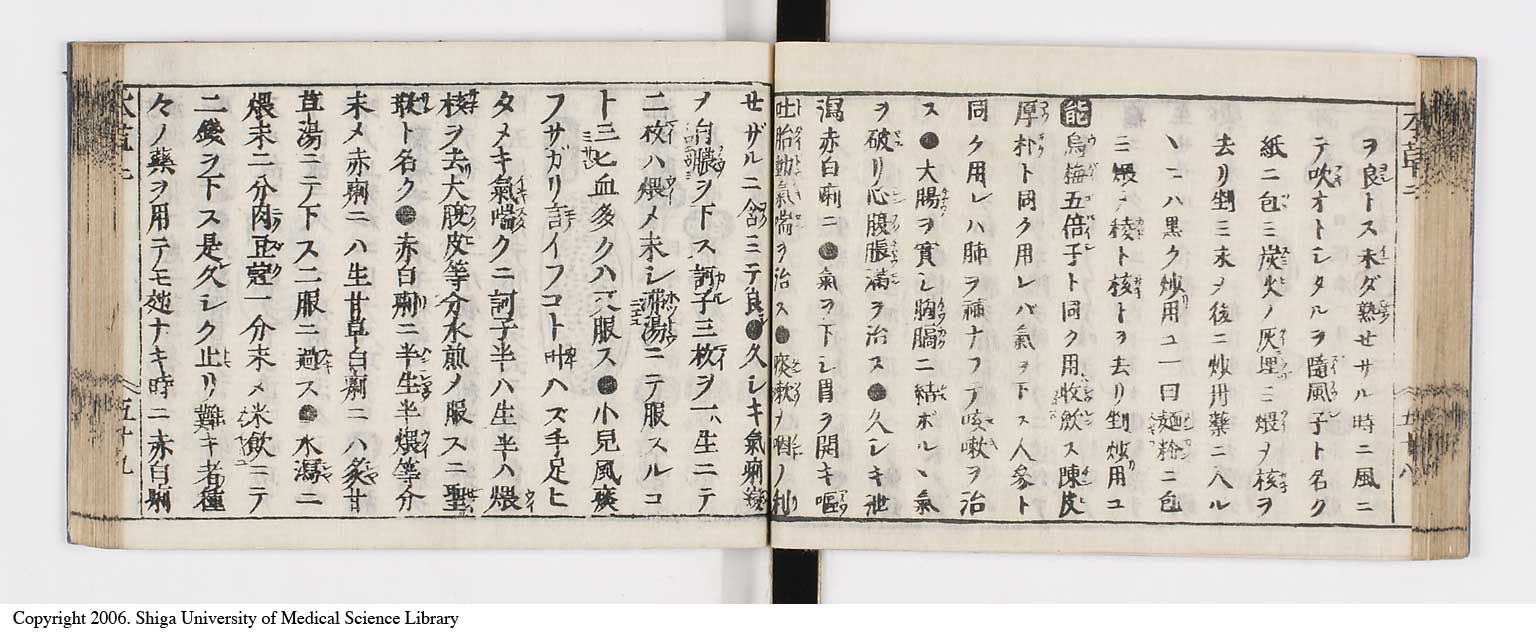 ヲ良トス未ダ熟セサル時ニ風ニ
テ吹オトシタルヲ隨風子ト名ク
紙ニ包ミ炭火ノ灰埋ミ煨メ核ヲ
去リ剉ミ末メ後ニ炒丹藥ニ入ル
ヽニハ黒ク炒用ユ一曰麵粉ニ包
ミ煨メ稜ト核トヲ去リ剉炒用ユ
能 烏梅五倍子ト同ク用收歛ス陳皮
厚朴ト同ク用レバ氣ヲ下ス人參ト
同ク用レハ肺ヲ補ナフテ咳嗽ヲ治
ス●大腸ヲ實シ胸膈ニ結ボルヽ氣
ヲ破リ心腹脹滿ヲ治ス●久シキ泄
瀉赤白痢ニ●氣ヲ下シ胃ヲ開キ嘔
吐胎動氣喘ヲ治ス●痰嗽ヲ咽ノ利
五十八
セザルニ含ミテ良●久シキ氣痢
ノ ヲ下ス訶子三枚ヲ一ハ生ニテ
二枚ハ煨メ末シ沸湯ニテ服スルコ
ト三匕血多クハ六服ス●小兒風痰
フサガリ言イフコト叶ハズ手足ヒ
タメキ氣喘クニ訶子半ハ生半ハ煨
核ヲ去大腹皮等分水煎ノ服スニ聖
散ト名ク●赤白痢ニ半生半煨等分
末メ赤痢ニハ生甘草白痢ニハ炙甘
草湯ニテ下ス二服ニ過ス●水瀉ニ
煨末二分肉豆蔲一分末メ米飮ニテ
二錢ヲ下ス是久シク止リ難キ者種
々ノ藥ヲ用テモ ナキ時ニ赤白痢
五十九
Copyright 2006. Shiga University of Medical Science Library